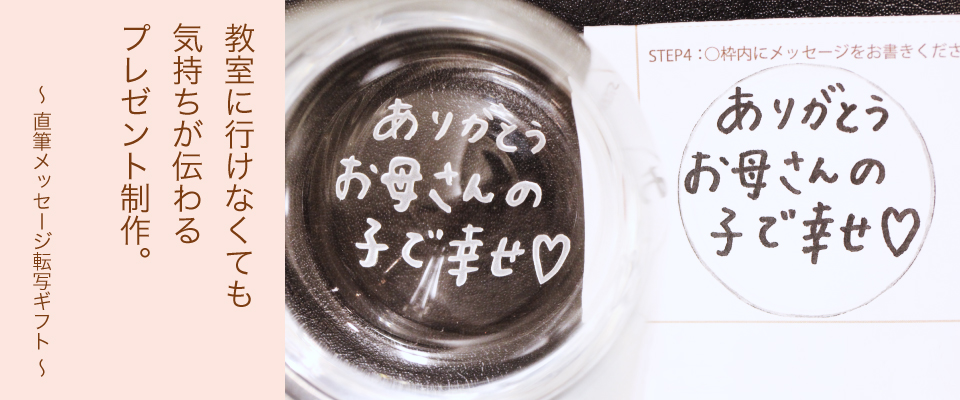 教室に行けなくても
気持ちが伝わる
プレゼント制作。
～直筆メッセージ転写ギフト～
ありがとう
お母さんの
子で幸せ♡
STEP4：〇枠内にメッセージをお書きくださ
ありがとう
お母さんの
子で幸せ♡